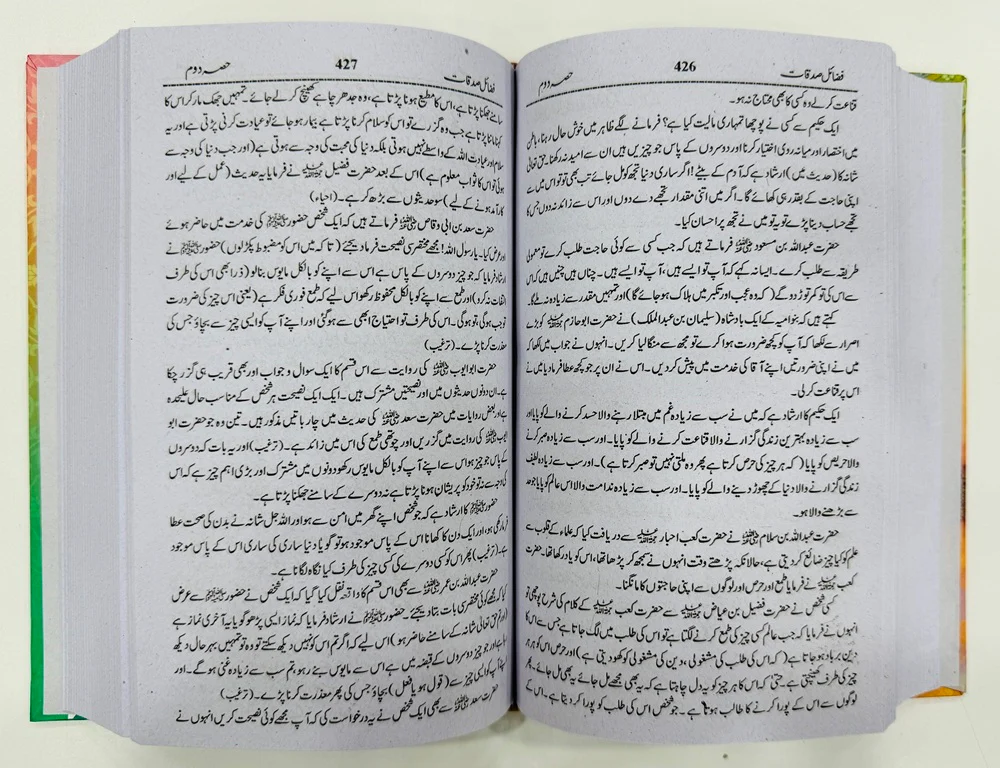 فضائل صدقات 426 حصہ دوم
قناعت کرلے وہ کسی کا بھی محتاج نہ ہو۔
ایک حکیم سے کسی نے پوچھا تمہاری مالیت کیا ہے؟ فرمانے لگے ظاہر میں خوش حال رہنا، باطن
میں اختصار اور میانہ روی اختیار کرنا اور دوسروں کے پاس جو چیزیں ہیں ان سے امید نہ رکھنا۔ حق تعالیٰ
شانہ کا (حدیث میں) ارشاد ہے کہ آدم کے بیٹے! اگر ساری دنیا تجھ کو مل جائے تب بھی تو تو اس میں سے
اپنی حاجت کے بقدر ہی کھائے گا۔ اگر میں اتنی مقدار تجھے دے دوں اور اس سے زائد نہ دوں جس کا
تجھے حساب دینا پڑے تو یہ تو میں نے تجھ پر احسان کیا۔
حضرت عبداللہ بن مسعود رضی اللہ عنہ فرماتے ہیں کہ جب کسی سے کوئی حاجت طلب کرے تو معمولی
طریقہ سے طلب کرے۔ ایسا نہ کہے کہ آپ تو ایسے ہیں، آپ تو ایسے ہیں، چناں ہیں چنیں ہیں کہ اس
سے اس کی تو کمر توڑ دو گے (کہ وہ عجب اور تکبر میں ہلاک ہو جائے گا) اور تمہیں مقدر سے زیادہ نہ ملے گا۔
کہتے ہیں کہ بنوامیہ کے ایک بادشاہ (سلیمان بن عبدالملک) نے حضرت ابوحازم کو بڑے
اصرار سے لکھا کہ آپ کو کچھ ضرورت ہوا کرے تو مجھ سے منگالیا کریں۔ انہوں نے جواب میں لکھا کہ
میں نے اپنی ضرورتیں اپنے آقا کی خدمت میں پیش کردیں۔ اس نے ان پر جو کچھ عطا فرمادیا میں نے
اس پر قناعت کرلی۔
ایک حکیم کا ارشاد ہے کہ میں نے سب سے زیادہ غم میں مبتلا رہنے والا حسد کرنے والے کو پایا اور
سب سے زیادہ بہترین زندگی گزارنے والا قناعت کرنے والے کو پایا۔ اور سب سے زیادہ صبر کرنے
والا حریص کو پایا (کہ ہر چیز کی حرص کرتا ہے پھر وہ ملتی نہیں تو صبر کرتا ہے)۔ اور سب سے زیادہ لطیف
زندگی گزارنے والا دنیا کے چھوڑ دینے والے کو پایا۔ اور سب سے زیادہ ندامت والا اس عالم کو پایا جو حد
سے بڑھنے والا ہو۔
حضرت عبداللہ بن سلام رضی اللہ عنہ نے حضرت کعب احبار سے دریافت کیا کہ علماء کے قلوب سے
علم کو کیا چیز ضائع کردیتی ہے، حالانکہ پڑھتے وقت انہوں نے سمجھ کر پڑھا تھا، اس کو یاد رکھا تھا، حضرت
کعب نے فرمایا طمع اور حرص اور لوگوں سے اپنی حاجتوں کا مانگنا۔
کسی شخص نے حضرت فضیل بن عیاض سے حضرت کعب کے کلام کی شرح پوچھی تو
انہوں نے فرمایا کہ جب عالم کسی چیز کی طمع کرنے لگتا ہے تو اس کی طلب میں لگ جاتا ہے جس سے اس کا
دین برباد ہو جاتا ہے (کہ اس کی طلب کی مشغولی، دین کی مشغولی کو کھو دیتی ہے) اور حرص اس کو ہر ہر
چیز کی طرف کھینچتی ہے۔ حتیٰ کہ اس کا ہر چیز کو یہ دل چاہتا ہے کہ یہ بھی مجھے مل جائے یہ بھی مل جائے۔ پھر
لوگوں سے اس کے پورا کرنے کا طالب ہوتا ہے۔ جو شخص اس کی طلب کو پورا کر دیتا ہے۔ اس کے
فضائل صدقات 427 حصہ دوم
سامنے جھکنا پڑتا ہے، اس کا مطیع ہونا پڑتا ہے، وہ جدھر چاہے کھینچ کر لے جائے۔ تمہیں جھک مار کر اس کا
کہنا ماننا پڑتا ہے جب وہ گزرے تو اس کو سلام کرنا پڑتا ہے بیمار ہو جائے تو عیادت کرنی پڑتی ہے اور یہ
سلام اور عیادت اللہ کے واسطے نہیں ہوتی بلکہ دنیا کی محبت کی وجہ سے ہوتی ہے (اور جب دنیا کی وجہ سے
ہوئی تو اس کا ثواب معلوم ہے) اس کے بعد حضرت فضیل نے فرمایا یہ حدیث (عمل کے لیے اور
کارآمد ہونے کے لیے) سو حدیثوں سے بڑھ کر ہے۔ (احیاء)
حضرت سعد بن ابی وقاص رضی اللہ عنہ فرماتے ہیں کہ ایک شخص حضور صلی اللہ علیہ وسلم کی خدمت میں حاضر ہوئے
اور عرض کیا۔ یا رسول اللہ! مجھے مختصر سی نصیحت فرما دیجئے (تا کہ میں اس کو مضبوط پکڑ لوں) حضور صلی اللہ علیہ وسلم نے
ارشاد فرمایا کہ جو چیز دوسروں کے پاس ہے اس سے اپنے کو بالکل مایوس بنالو (ذرا بھی اس کی طرف
التفات نہ کرو) اور طمع سے اپنے کو بالکل محفوظ رکھو اس لیے کہ طمع فوری فقر ہے (یعنی اس چیز کی ضرورت
تو جب ہوگی، تو ہوگی۔ اس کی طرف تو احتیاج ابھی سے ہوگئی اور اپنے آپ کو ایسی چیز سے بچاؤ جس کی
معذرت کرنا پڑے۔ (ترغیب)
حضرت ابوایوب رضی اللہ عنہ کی روایت سے اس قسم کا ایک سوال و جواب اور بھی قریب ہی گزر چکا
ہے۔ ان دونوں حدیثوں میں اور نصیحتیں مشترک ہیں۔ ایک ایک نصیحت ہر شخص کے مناسب حال علیحدہ
ہے اور بعض روایات میں حضرت سعد رضی اللہ عنہ کی حدیث میں چار باتیں مذکور ہیں۔ تین وہ جو حضرت ابو
ایوب رضی اللہ عنہ کی روایت میں گزریں اور چوتھی طمع کی اس میں زائد ہے۔ (ترغیب) اور یہ بات کہ دوسروں
کے پاس جو چیز ہو اس سے اپنے آپ کو بالکل مایوس رکھو دونوں میں مشترک اور بڑی اہم چیز ہے کہ اس
کی وجہ سے نہ تو خود کو پریشان ہونا پڑتا ہے نہ دوسرے کے سامنے جھکنا پڑتا ہے۔
حضور صلی اللہ علیہ وسلم کا ارشاد ہے کہ جو شخص اپنے گھر میں امن سے ہو اور اللہ جل شانہ نے بدن کی صحت عطا
فرما رکھی ہو، اور ایک دن کا کھانا اس کے پاس موجود ہو تو گویا دنیا ساری کی ساری اس کے پاس موجود
ہے۔ (ترغیب) پھر اس کو کسی دوسرے کی کسی چیز کی طرف کیا نگاہ لگانا ہے۔
حضرت عبداللہ بن عمر رضی اللہ عنہ سے بھی اس قسم کا واقعہ نقل کیا گیا کہ ایک شخص نے حضور صلی اللہ علیہ وسلم سے عرض
کیا کہ مجھے کوئی مختصر سی بات بتا دیجئے۔ حضور صلی اللہ علیہ وسلم نے ارشاد فرمایا کہ نماز ایسی پڑھو گویا یہ آخری نماز ہے
اور تم حق تعالیٰ شانہ کے سامنے حاضر ہو) اس لیے کہ اگر تم اس کو نہیں دیکھ سکتے تو وہ تو تمہیں بہر حال دیکھ
رہا ہے اور جو چیز دوسروں کے قبضہ میں ہے اس سے مایوس بنے رہو، تم سب سے زیادہ غنی ہوگے۔ اور
اپنے آپ کو ایسی چیز سے (قول ہو یا فعل) بچاؤ جس کی پھر معذرت کرنا پڑے۔ (ترغیب)
حضرت سعد رضی اللہ عنہ سے بھی ایک شخص نے یہ درخواست کی کہ آپ مجھے کوئی نصیحت کریں انہوں نے